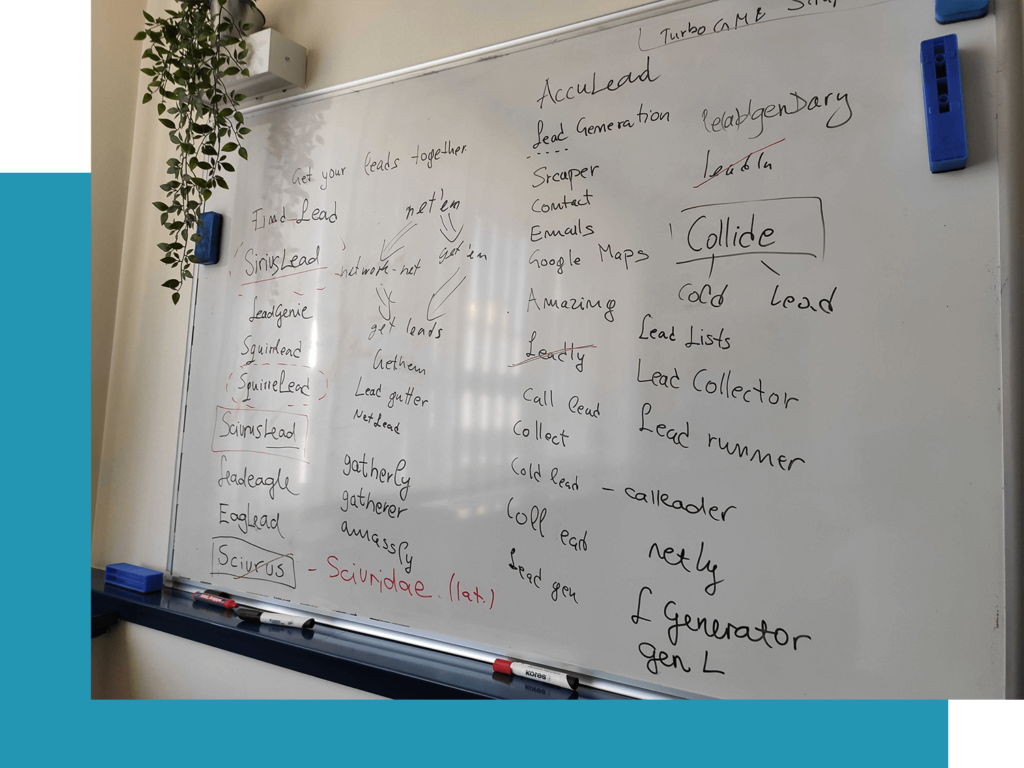 Turbo
AccuLead
Lead Generation
Srcaper
Contact
Emails
Google Maps
Amazing
Leadly
Call lead
Collect
Cold lead - calleader
Coll ead
Lead gen
leadgenDary
leadIn
Collide
Cold
Lead
Lead Lists
Lead Collector
Lead runner
netly
L Generator
gen L
Get your leads together
Find Lead
SiriusLead
LeadGenie
Squirrlead
SquirreLead
SciurusLead
leadeagle
EagLead
Sciurus - Sciuridae (lat.)
net'em
network-net
get'em
get leads
Gethem
Lead gutter
NetLead
gatherly
gatherer
amassly
kores
kores